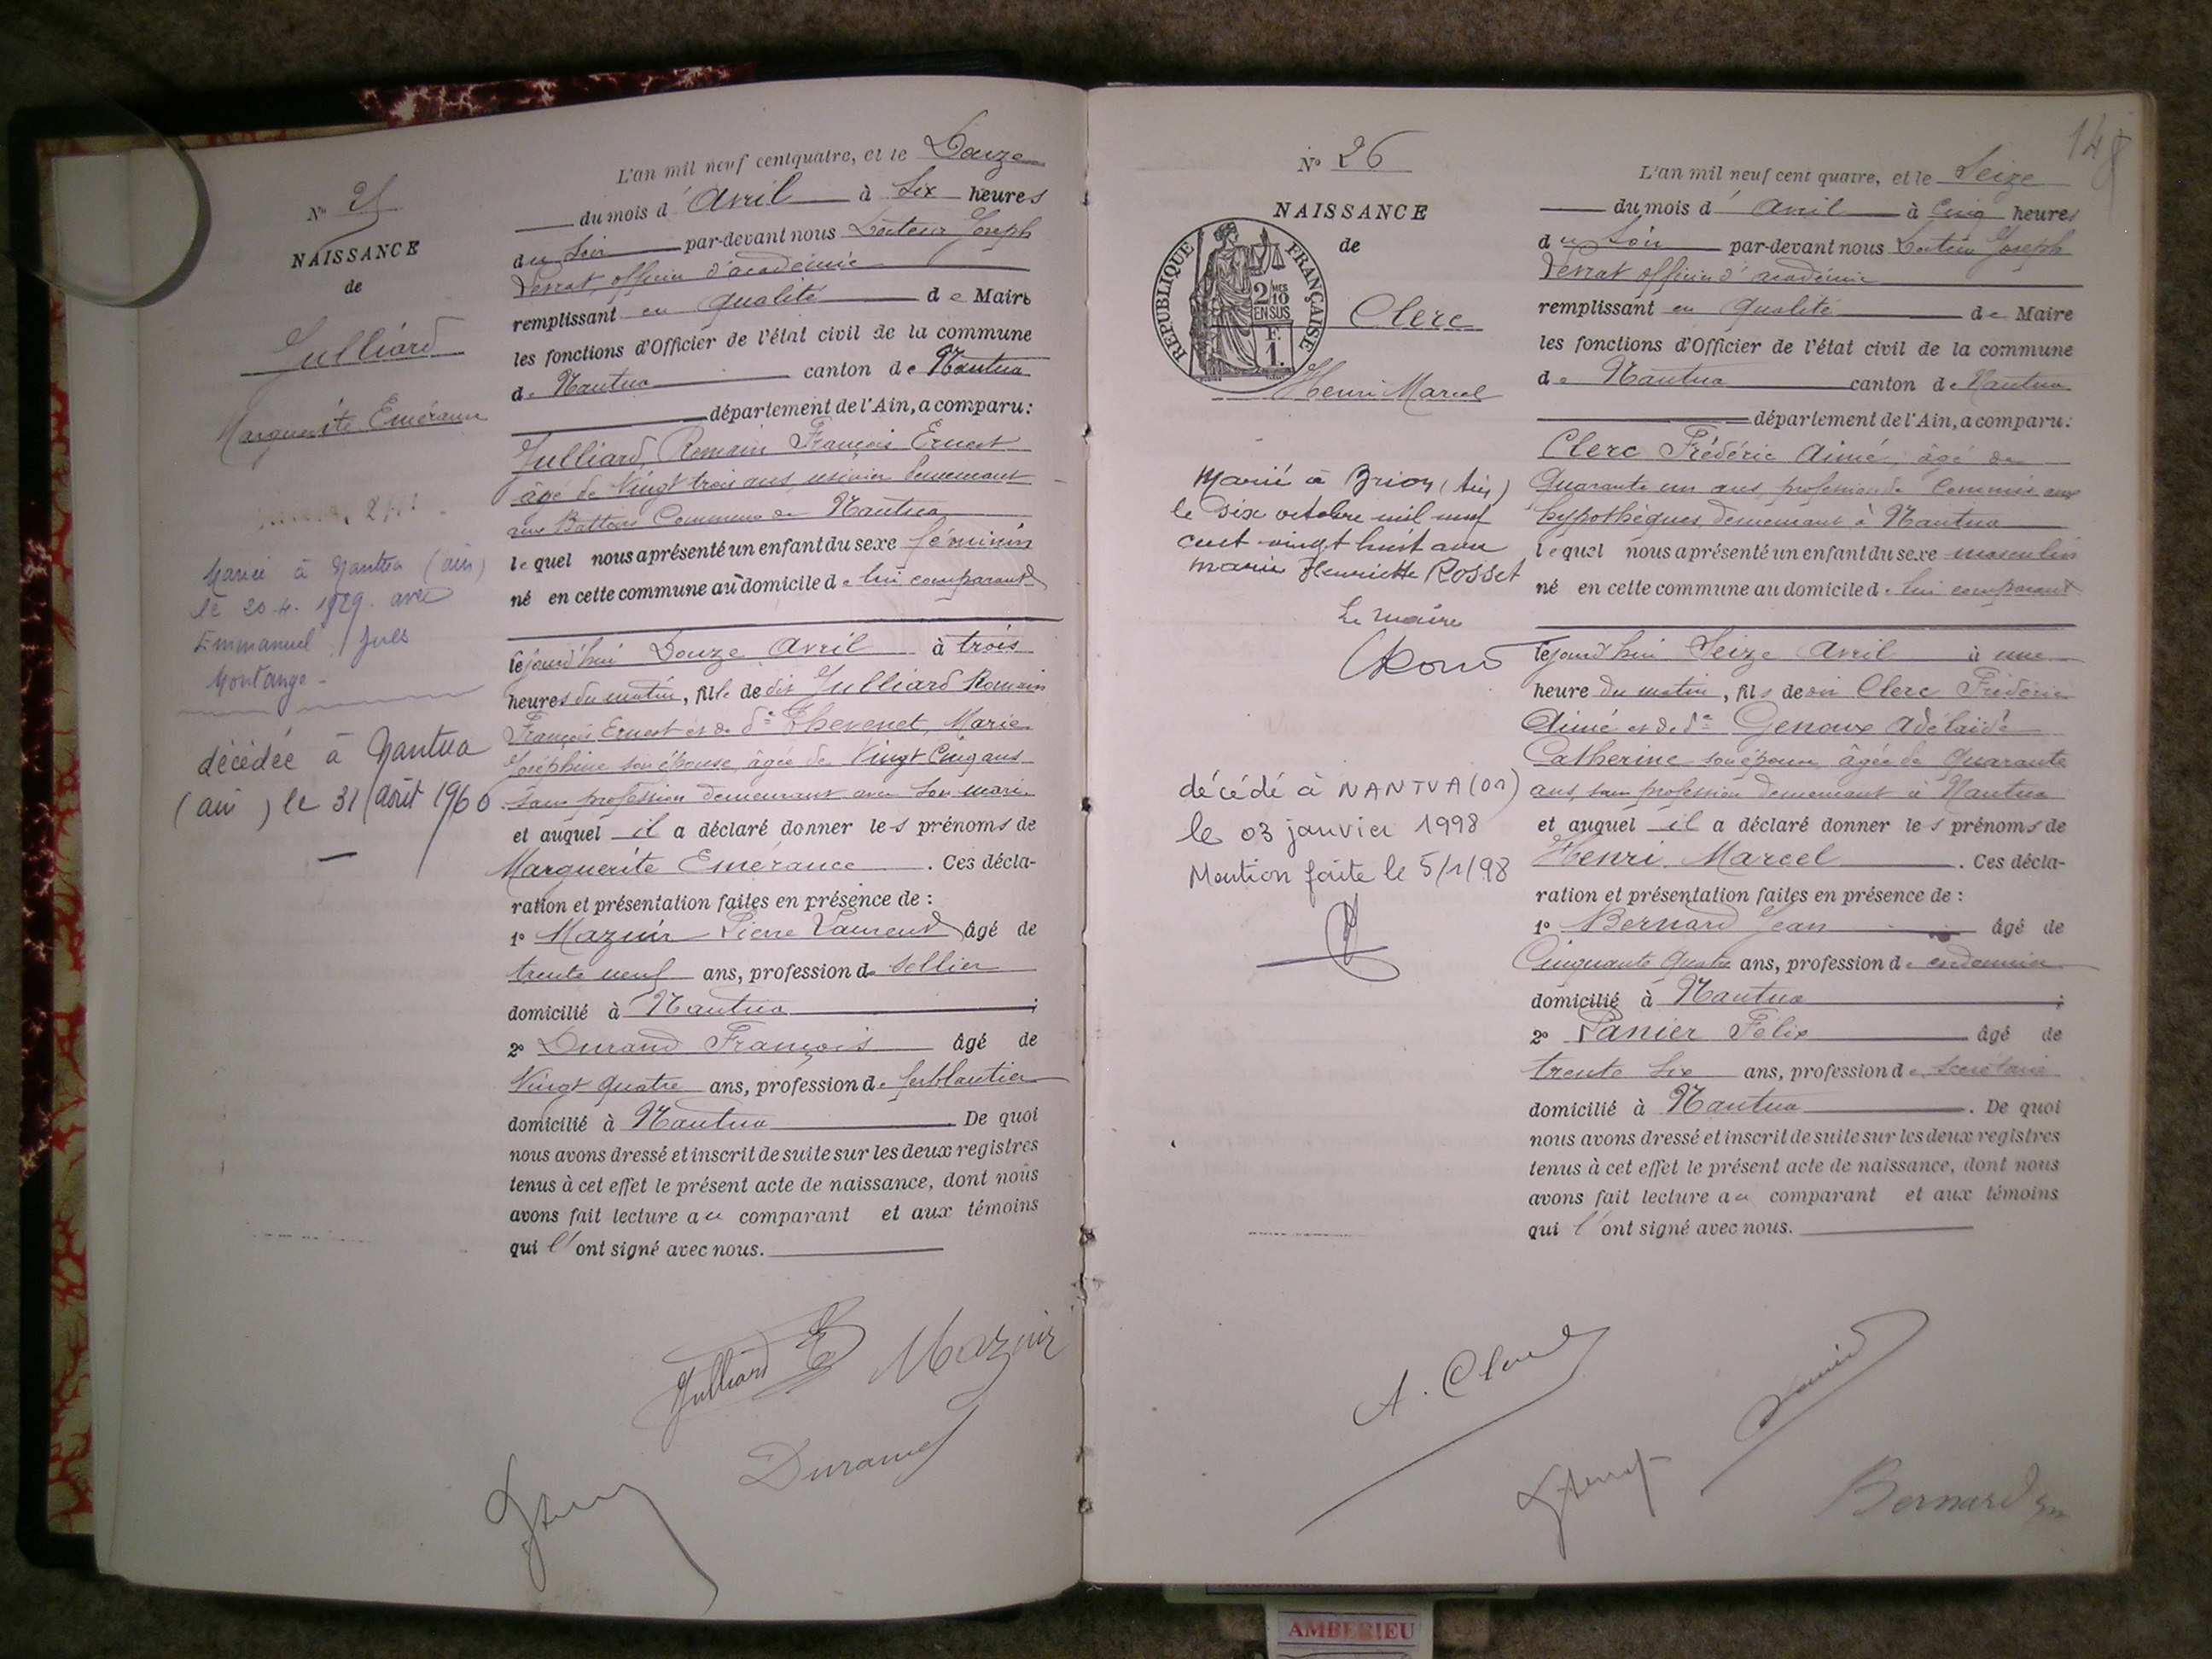 N° 25
NAISSANCE
de
Julliard
Marguerite Emérance
Mariée à Nantua (ain)
le 20.4.1929. avec
Emmanuel Jules
Montange -
décédée à Nantua
(ain) le 31 août 1960
L'an mil neuf cent quatre, et le Douze
du mois d'Avril à Six heures
du Soir par-devant nous Docteur Joseph
officier d'académie
remplissant en qualité de Maire
les fonctions d'Officier de l'état civil de la commune
de Nantua canton de Nantua
département de l'Ain, a comparu :
Julliard, Romain François Ernest
âgé de Vingt trois ans, usinier demeurant
aux Battoirs Commune de Nantua
lequel nous a présenté un enfant du sexe féminin
né en cette commune au domicile de lui comparant
le jourd'hui Douze Avril à trois
heures du matin, fille de dit Julliard Romain
François Ernest et de de Thevenet, Marie
Joséphine son épouse, âgée de Vingt Cinq ans
sans profession demeurant avec son mari
et auquel il a déclaré donner les prénoms de
Marguerite Emérance . Ces décla-
ration et présentation faites en présence de :
1° Mazuir Pierre Laurent âgé de
trente neuf ans, profession de Sellier
domicilié à Nantua ;
2° Durand François âgé de
Vingt quatre ans, profession de ferblantier
domicilié à Nantua . De quoi
nous avons dressé et inscrit de suite sur les deux registres
tenus à cet effet le présent acte de naissance, dont nous
avons fait lecture au comparant et aux témoins
qui l'ont signé avec nous.
Julliard E Mazuir
Durand
148
N° 26
NAISSANCE
de
REPUBLIQUE FRANÇAISE
2/10 MES
EN SUS
F.
1.
Clerc
Henri Marcel
Marié à Brion (Ain)
le Six octobre mil neuf
cent vingt huit avec
Marie Henriette Rosset
Le maire
décédé à NANTUA (01)
le 03 janvier 1998
Mention faite le 5/1/98
L'an mil neuf cent quatre, et le Seize
du mois d'avril à Cinq heures
du Soir par-devant nous Docteur Joseph
officier d'académie
remplissant en qualité de Maire
les fonctions d'Officier de l'état civil de la commune
de Nantua canton de Nantua
département de l'Ain, a comparu :
Clerc Frédéric Aimé, âgé de
Quarante un ans, profession de Commis aux
hypothèques demeurant à Nantua
lequel nous a présenté un enfant du sexe masculin
né en cette commune au domicile de lui comparant
le jourd'hui Seize Avril à une
heure du matin, fils de Clerc Frédéric
Aimé et de de Genoux Adélaïde
Catherine son épouse, âgée de Quarante
ans, sans profession demeurant à Nantua
et auquel il a déclaré donner les prénoms de
Henri Marcel . Ces décla-
ration et présentation faites en présence de :
1° Bernard Jean âgé de
Cinquante Quatre ans, profession de cordonnier
domicilié à Nantua ;
2° Panier Félix âgé de
trente Six ans, profession de Secrétaire
domicilié à Nantua . De quoi
nous avons dressé et inscrit de suite sur les deux registres
tenus à cet effet le présent acte de naissance, dont nous
avons fait lecture au comparant et aux témoins
qui l'ont signé avec nous.
A. Clerc Panier
Bernard
AMBERIEU